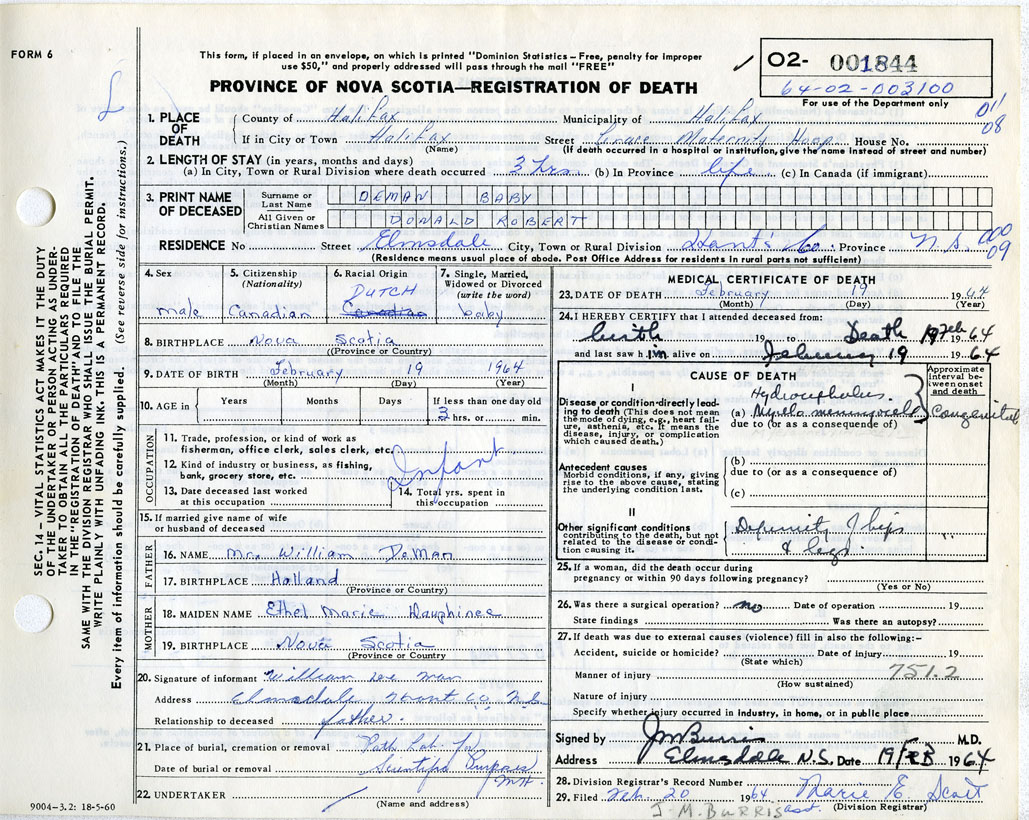 FORM 6
This form, if placed in an envelope, on which is printed "Dominion Statistics – Free, penalty for improper
use $50," and properly addressed will pass through the mail "FREE"
PROVINCE OF NOVA SCOTIA—REGISTRATION OF DEATH
O2- 001844
64-02-003100
For use of the Department only
SEC. 14 – VITAL STATISTICS ACT MAKES IT THE DUTY
OF THE UNDERTAKER OR PERSON ACTING AS UNDER-
TAKER TO OBTAIN ALL THE PARTICULARS REQUIRED
IN THE "REGISTRATION OF DEATH" AND TO FILE THE
SAME WITH THE DIVISION REGISTRAR WHO SHALL ISSUE THE BURIAL PERMIT.
WRITE PLAINLY WITH UNFADING INK. THIS IS A PERMANENT RECORD.
Every item of information should be carefully supplied. (See reverse side for instructions.)
1. PLACE OF DEATH County of Halifax Municipality of Halifax 011
If in City or Town Halifax Street Grace Maternity Hosp House No. 08
(Name) (If death occurred in a hospital or institution, give the name instead of street and number)
2. LENGTH OF STAY (in years, months and days)
(a) In City, Town or Rural Division where death occurred 3 hrs (b) In Province life (c) In Canada (if immigrant)
3. PRINT NAME OF DECEASED Surname or Last Name DEMAN BABY
All Given or Christian Names DONALD ROBERT
RESIDENCE No Street Elmsdale City, Town or Rural Division Hant's Co Province N.S. 000 09
(Residence means usual place of abode. Post Office Address for residents in rural parts not sufficient)
4. Sex male
5. Citizenship (Nationality) Canadian
6. Racial Origin DUTCH Canadian
7. Single, Married, Widowed or Divorced (write the word) baby
8. BIRTHPLACE Nova Scotia
(Province or Country)
9. DATE OF BIRTH February 19 1964
(Month) (Day) (Year)
10. AGE in Years Months Days If less than one day old
3 hrs. or min.
OCCUPATION
11. Trade, profession, or kind of work as
fisherman, office clerk, sales clerk, etc.
Infant
12. Kind of industry or business, as fishing,
bank, grocery store, etc.
13. Date deceased last worked
at this occupation
14. Total yrs. spent in
this occupation
15. If married give name of wife
or husband of deceased
FATHER
16. NAME Mr. William DeMan
17. BIRTHPLACE Holland
(Province or Country)
MOTHER
18. MAIDEN NAME Ethel Marie Dauphinee
19. BIRTHPLACE Nova Scotia
(Province or Country)
20. Signature of informant William de man
Address Elmsdale Hant Co, N.S.
Relationship to deceased father.
21. Place of burial, cremation or removal Path Lab. for
Date of burial or removal Scientific Purposes
22. UNDERTAKER
(Name and address)
9004-3.2: 18-5-60
MEDICAL CERTIFICATE OF DEATH
23. DATE OF DEATH February 19 1964
(Month) (Day) (Year)
24. I HEREBY CERTIFY that I attended deceased from:
birth 19 to Death 19 Feb 64
and last saw him alive on February 19 1964
CAUSE OF DEATH
Approximate
interval be-
tween onset
and death
I
Disease or condition directly lead-
ing to death (This does not mean
the mode of dying, e.g., heart fail-
ure, asthenia, etc. It means the
disease, injury, or complication
which caused death.)
Hydrocephalus.
(a) Myelo meningocele Congenital
due to (or as a consequence of)
Antecedent causes
Morbid conditions, if any, giving
rise to the above cause, stating
the underlying condition last.
(b)
due to (or as a consequence of)
(c)
II
Other significant conditions
contributing to the death, but not
related to the disease or condi-
tion causing it.
Deformity of hips
& legs.
25. If a woman, did the death occur during
pregnancy or within 90 days following pregnancy?
(Yes or No)
26. Was there a surgical operation? no Date of operation 19
State findings Was there an autopsy?
27. If death was due to external causes (violence) fill in also the following:–
Accident, suicide or homicide? Date of injury 19
(State which)
Manner of injury 751.2
(How sustained)
Nature of injury
Specify whether injury occurred in industry, in home, or in public place
Signed by J M Burris M.D.
Address Elmsdale N.S. Date 19/FEB 1964
28. Division Registrar's Record Number
29. Filed Feb. 20 1964 Marie E Scott
(Division Registrar)
J. M. BURRIS asst.